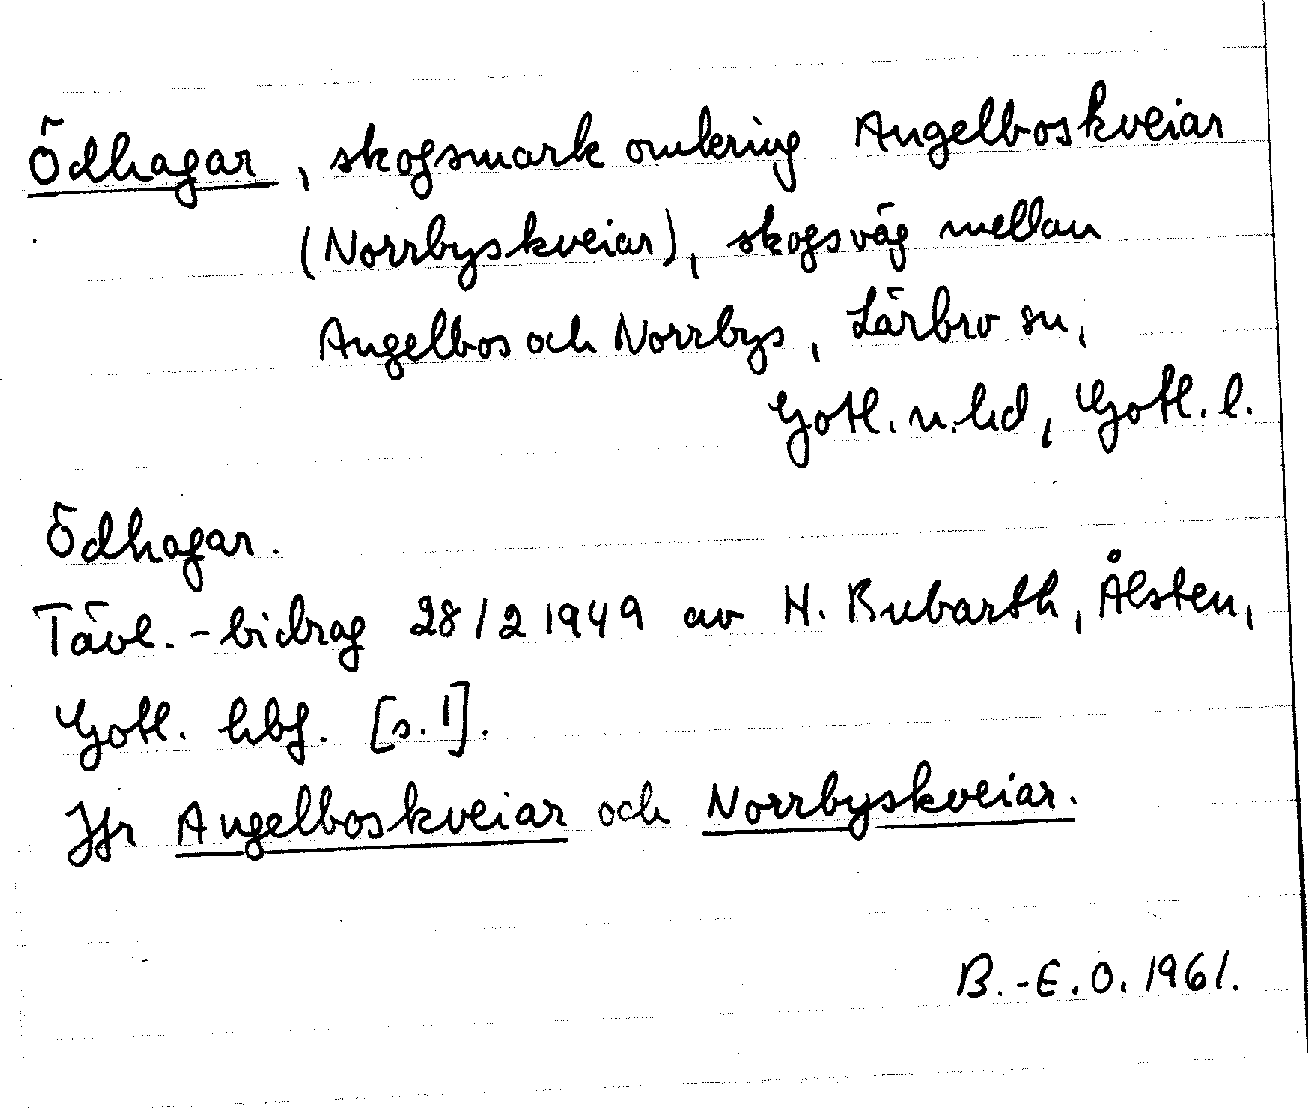 Ödhagar, skogsmark omkring Angelboskveiar
(Norrbyskveiar), skogsväg mellan
Angelbos och Norrbys, Lärbro sn,
Gotl. n. hd, Gotl. l.
Ödhagar.
Tävl.-bidrag 28/2 1949 av H. Rubarth, Ålsten,
Gotl. hbf. [s. 1].
Jfr Angelboskveiar och Norrbyskveiar.
B.-E. O. 1961.